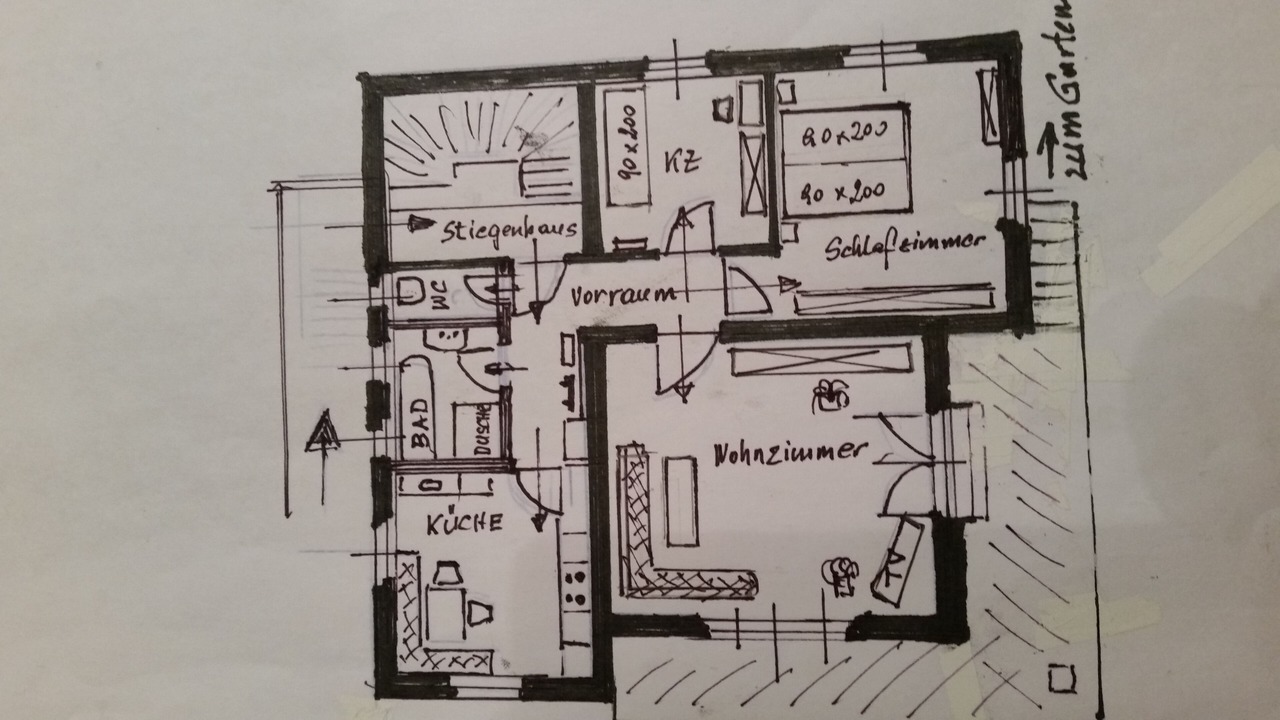 zum Garten
90x200
KZ
20x200
20x200
Stiegenhaus
Schlafzimmer
WC
Vorraum
BAD
DUSCHE
Wohnzimmer
KÜCHE
TV